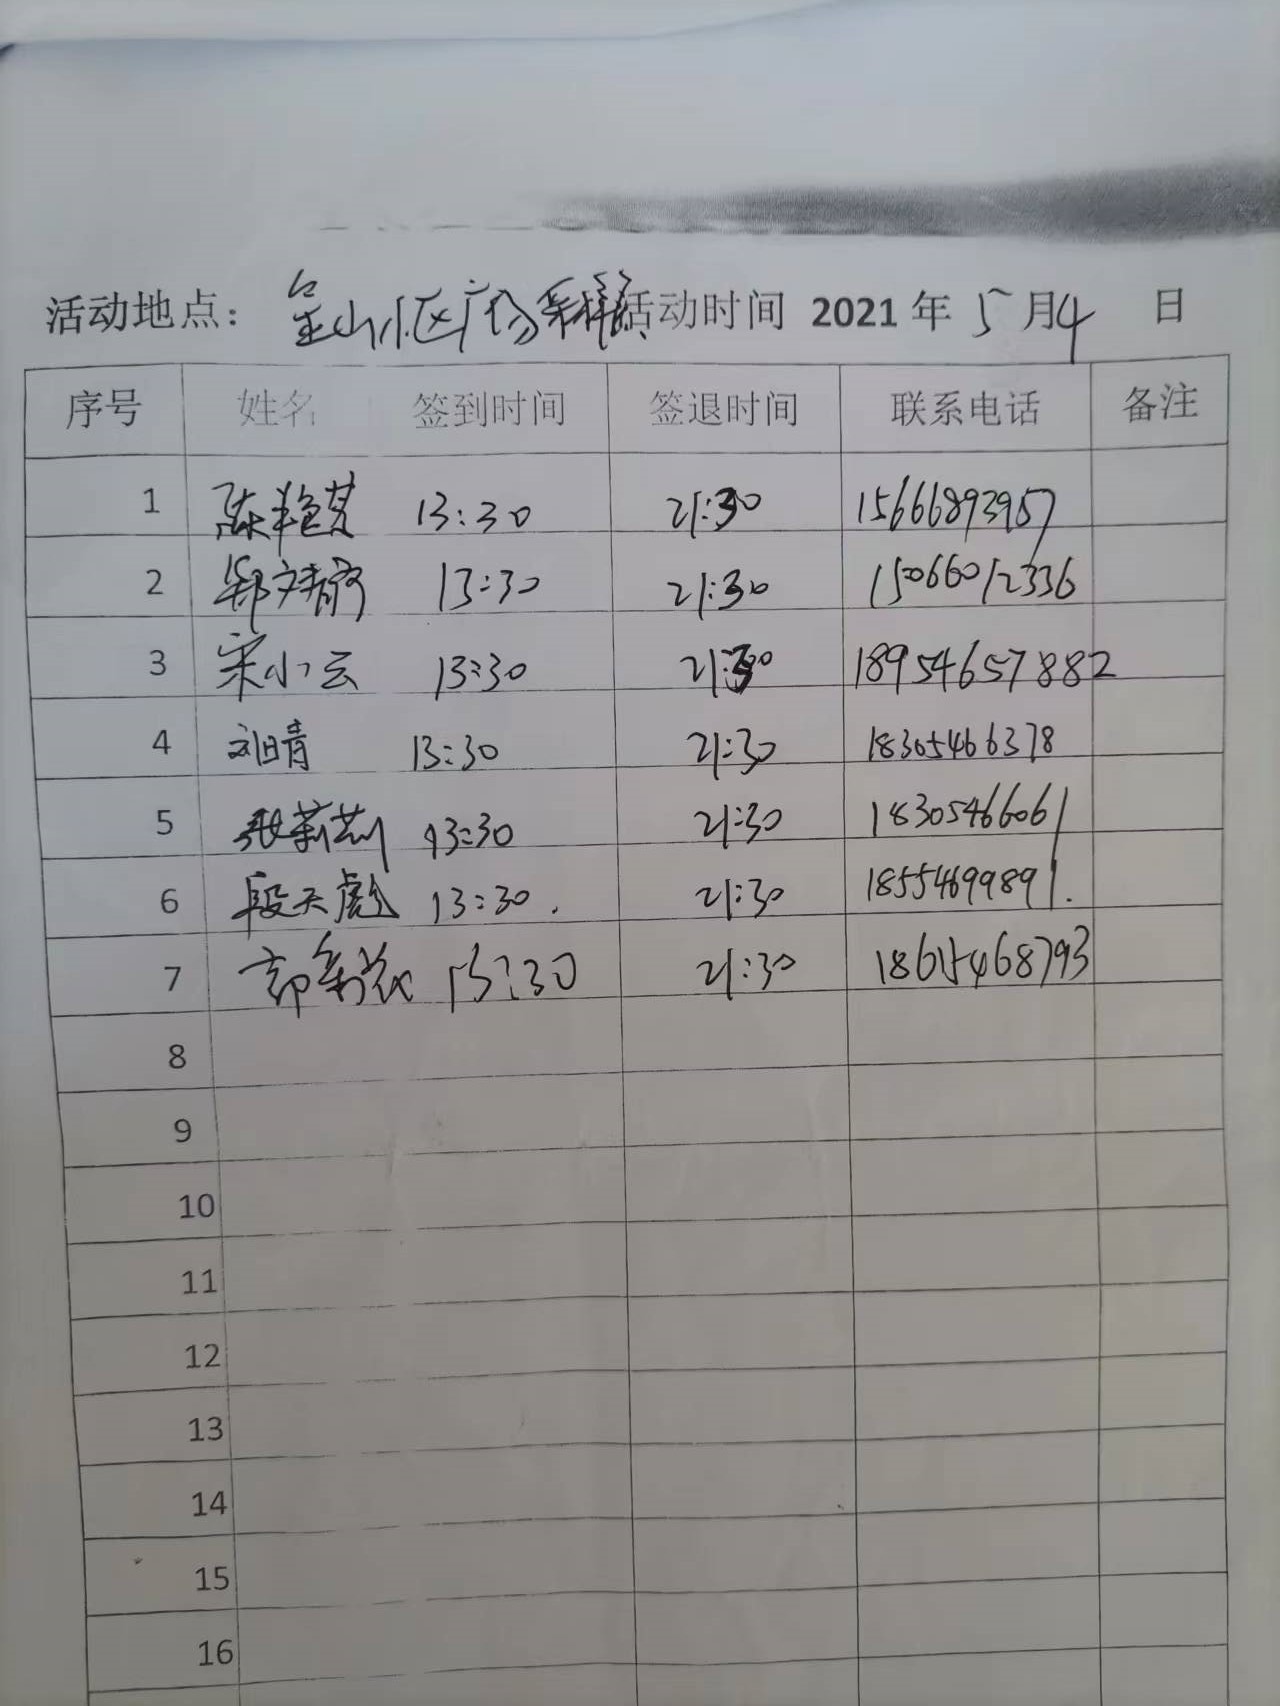 活动地点：金山小区广场采样 活动时间 2021 年 5 月 4 日
序号 姓名 签到时间 签退时间 联系电话 备注
1 陈艳 13:30 21:30 15666893957
2 郑文静 13:30 21:30 15066012336
3 宋小云 13:30 21:30 18954657882
4 刘晴 13:30 21:30 18305466378
5 张莉莉 13:30 21:30 18305466061
6 段天彪 13:30. 21:30 18554699891.
7 郭 13:30 21:30 18615468793
8
9
10
11
12
13
14
15
16